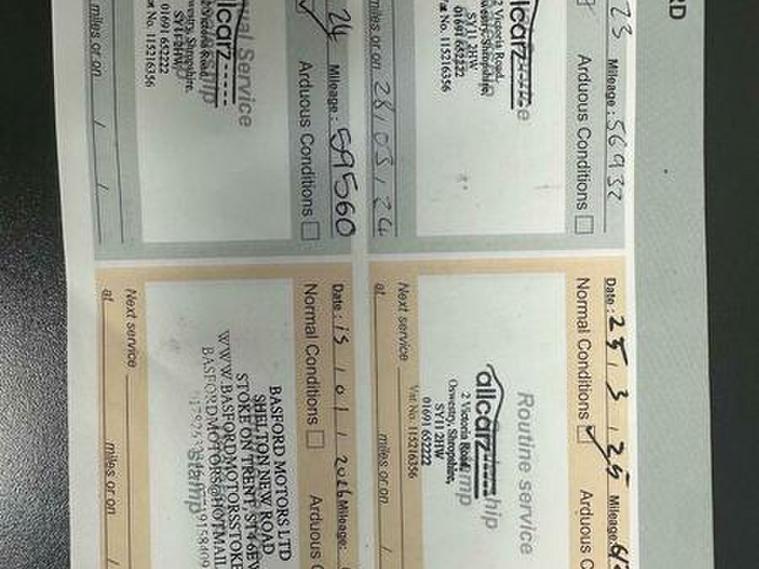 RD
23 Mileage: 56932
Arduous Conditions
allcarz
2 Victoria Road,
Oswestry, Shropshire,
SY11 2HW
01691 652222
Vat No. 115216356
miles or on 28/03/24
Date: 25/3/25 Mileage:
Normal Conditions Arduous
Routine service
allcarz
2 Victoria Road,
Oswestry, Shropshire,
SY11 2HW
01691 652222
Vat No. 115216356
Next service
at miles or on /
24 Mileage: 59560
Arduous Conditions
Service
allcarz
SY11 2HW
01691 652222
Vat No. 115216356
miles or on / /
Date: 15/01/2026 Mileage:
Normal Conditions Arduous
BASFORD MOTORS LTD
SHELTON NEW ROAD
STOKE ON TRENT, ST4 6EV
WWW.BASFORDMOTORSSTOKE
BASFORDMOTORS@HOTMAIL
Stamp
Next service
at miles or on /